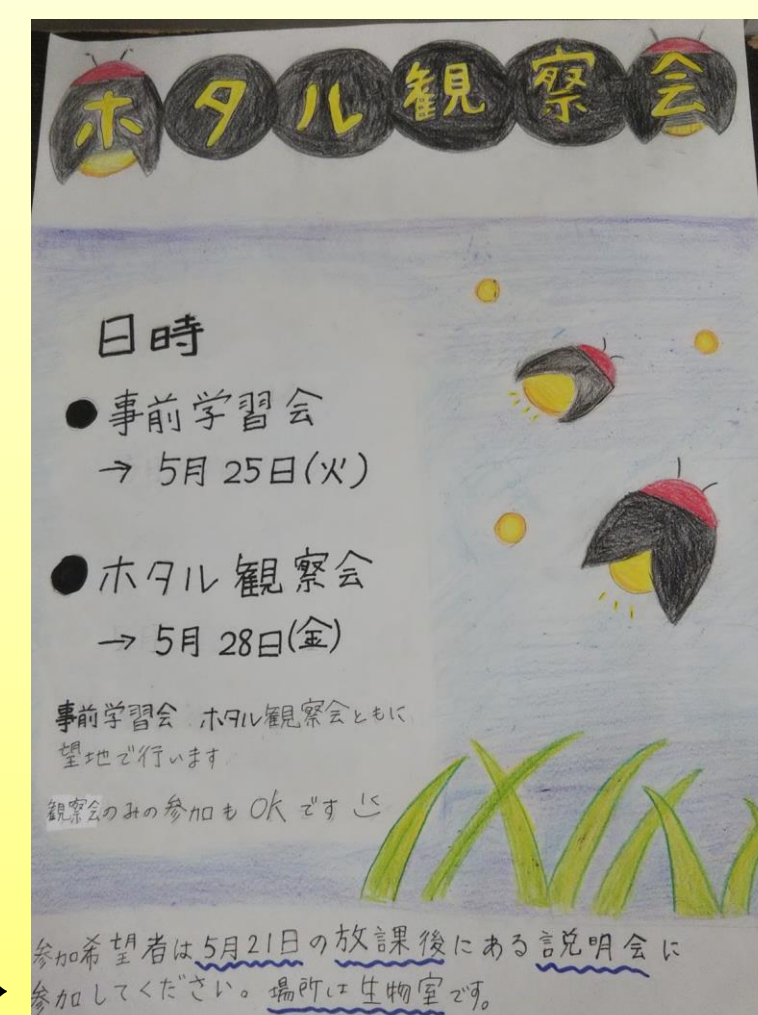 ホタル観察会
日時
●事前学習会
→ 5月25日(火)
●ホタル観察会
→ 5月28日(金)
事前学習会 ホタル観察会ともに
望地で行います
観察会のみの参加もOKです
参加希望者は5月21日の放課後にある説明会に
参加してください。場所は生物室です。